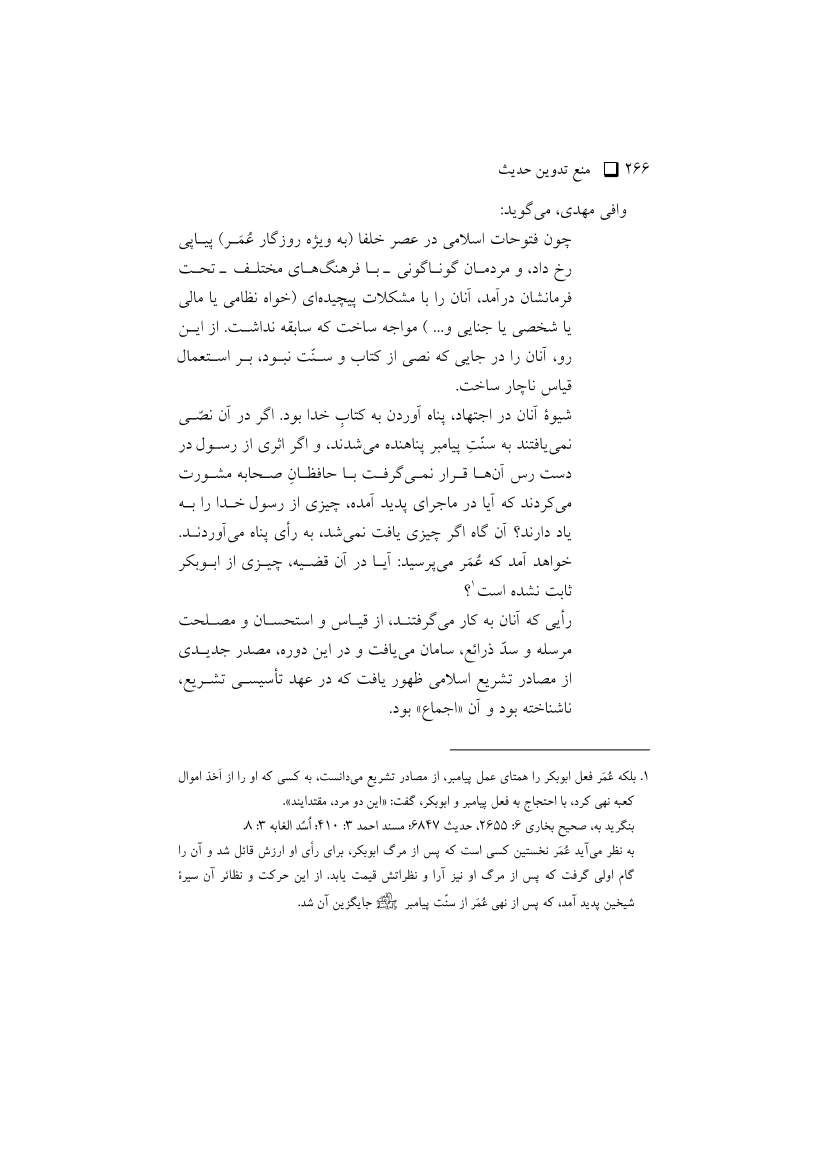 ۲۶۶ ❑ منع تدوین حدیث
وافی مهدی، می‌گوید:
چون فتوحات اسلامی در عصر خلفا (به ویژه روزگار عُمَـر) پیـاپی
رخ داد، و مردمـان گونـاگونی ـ بـا فرهنگ‌هـای مختلـف ـ تحـت
فرمانشان درآمد، آنان را با مشکلات پیچیده‌ای (خواه نظامی یا مالی
یا شخصی یا جنایی و... ) مواجه ساخت که سابقه نداشـت. از ایـن
رو، آنان را در جایی که نصی از کتاب و سـنّت نبـود، بـر اسـتعمال
قیاس ناچار ساخت.
شیوۀ آنان در اجتهاد، پناه آوردن به کتابِ خدا بود. اگر در آن نصّـی
نمی‌یافتند به سنّتِ پیامبر پناهنده می‌شدند، و اگر اثری از رسـول در
دست رس آن‌هـا قـرار نمـی‌گرفـت بـا حافظـانِ صـحابه مشـورت
می‌کردند که آیا در ماجرای پدید آمده، چیزی از رسول خـدا را بـه
یاد دارند؟ آن گاه اگر چیزی یافت نمی‌شد، به رأی پناه می‌آوردنـد.
خواهد آمد که عُمَر می‌پرسید: آیـا در آن قضـیه، چیـزی از ابـوبکر
ثابت نشده است۱؟
رأیی که آنان به کار می‌گرفتنـد، از قیـاس و استحسـان و مصـلحت
مرسله و سدّ ذرائع، سامان می‌یافت و در این دوره، مصدر جدیـدی
از مصادر تشریع اسلامی ظهور یافت که در عهد تأسیسـی تشـریع،
ناشناخته بود و آن «اجماع» بود.
۱. بلکه عُمَر فعل ابوبکر را همتای عمل پیامبر، از مصادر تشریع می‌دانست، به کسی که او را از اَخذ اموال
کعبه نهی کرد، با احتجاج به فعل پیامبر و ابوبکر، گفت: «این دو مرد، مقتدایند».
بنگرید به، صحیح بخاری ۶: ۲۶۵۵، حدیث ۶۸۴۷؛ مسند احمد ۳: ۴۱۰؛ اُسْد الغابه ۳: ۸.
به نظر می‌آید عُمَر نخستین کسی است که پس از مرگ ابوبکر، برای رأی او ارزش قائل شد و آن را
گام اولی گرفت که پس از مرگ او نیز آرا و نظراتش قیمت یابد. از این حرکت و نظائر آن سیرۀ
شیخین پدید آمد، که پس از نهی عُمَر از سنّت پیامبر ﷺ جایگزین آن شد.